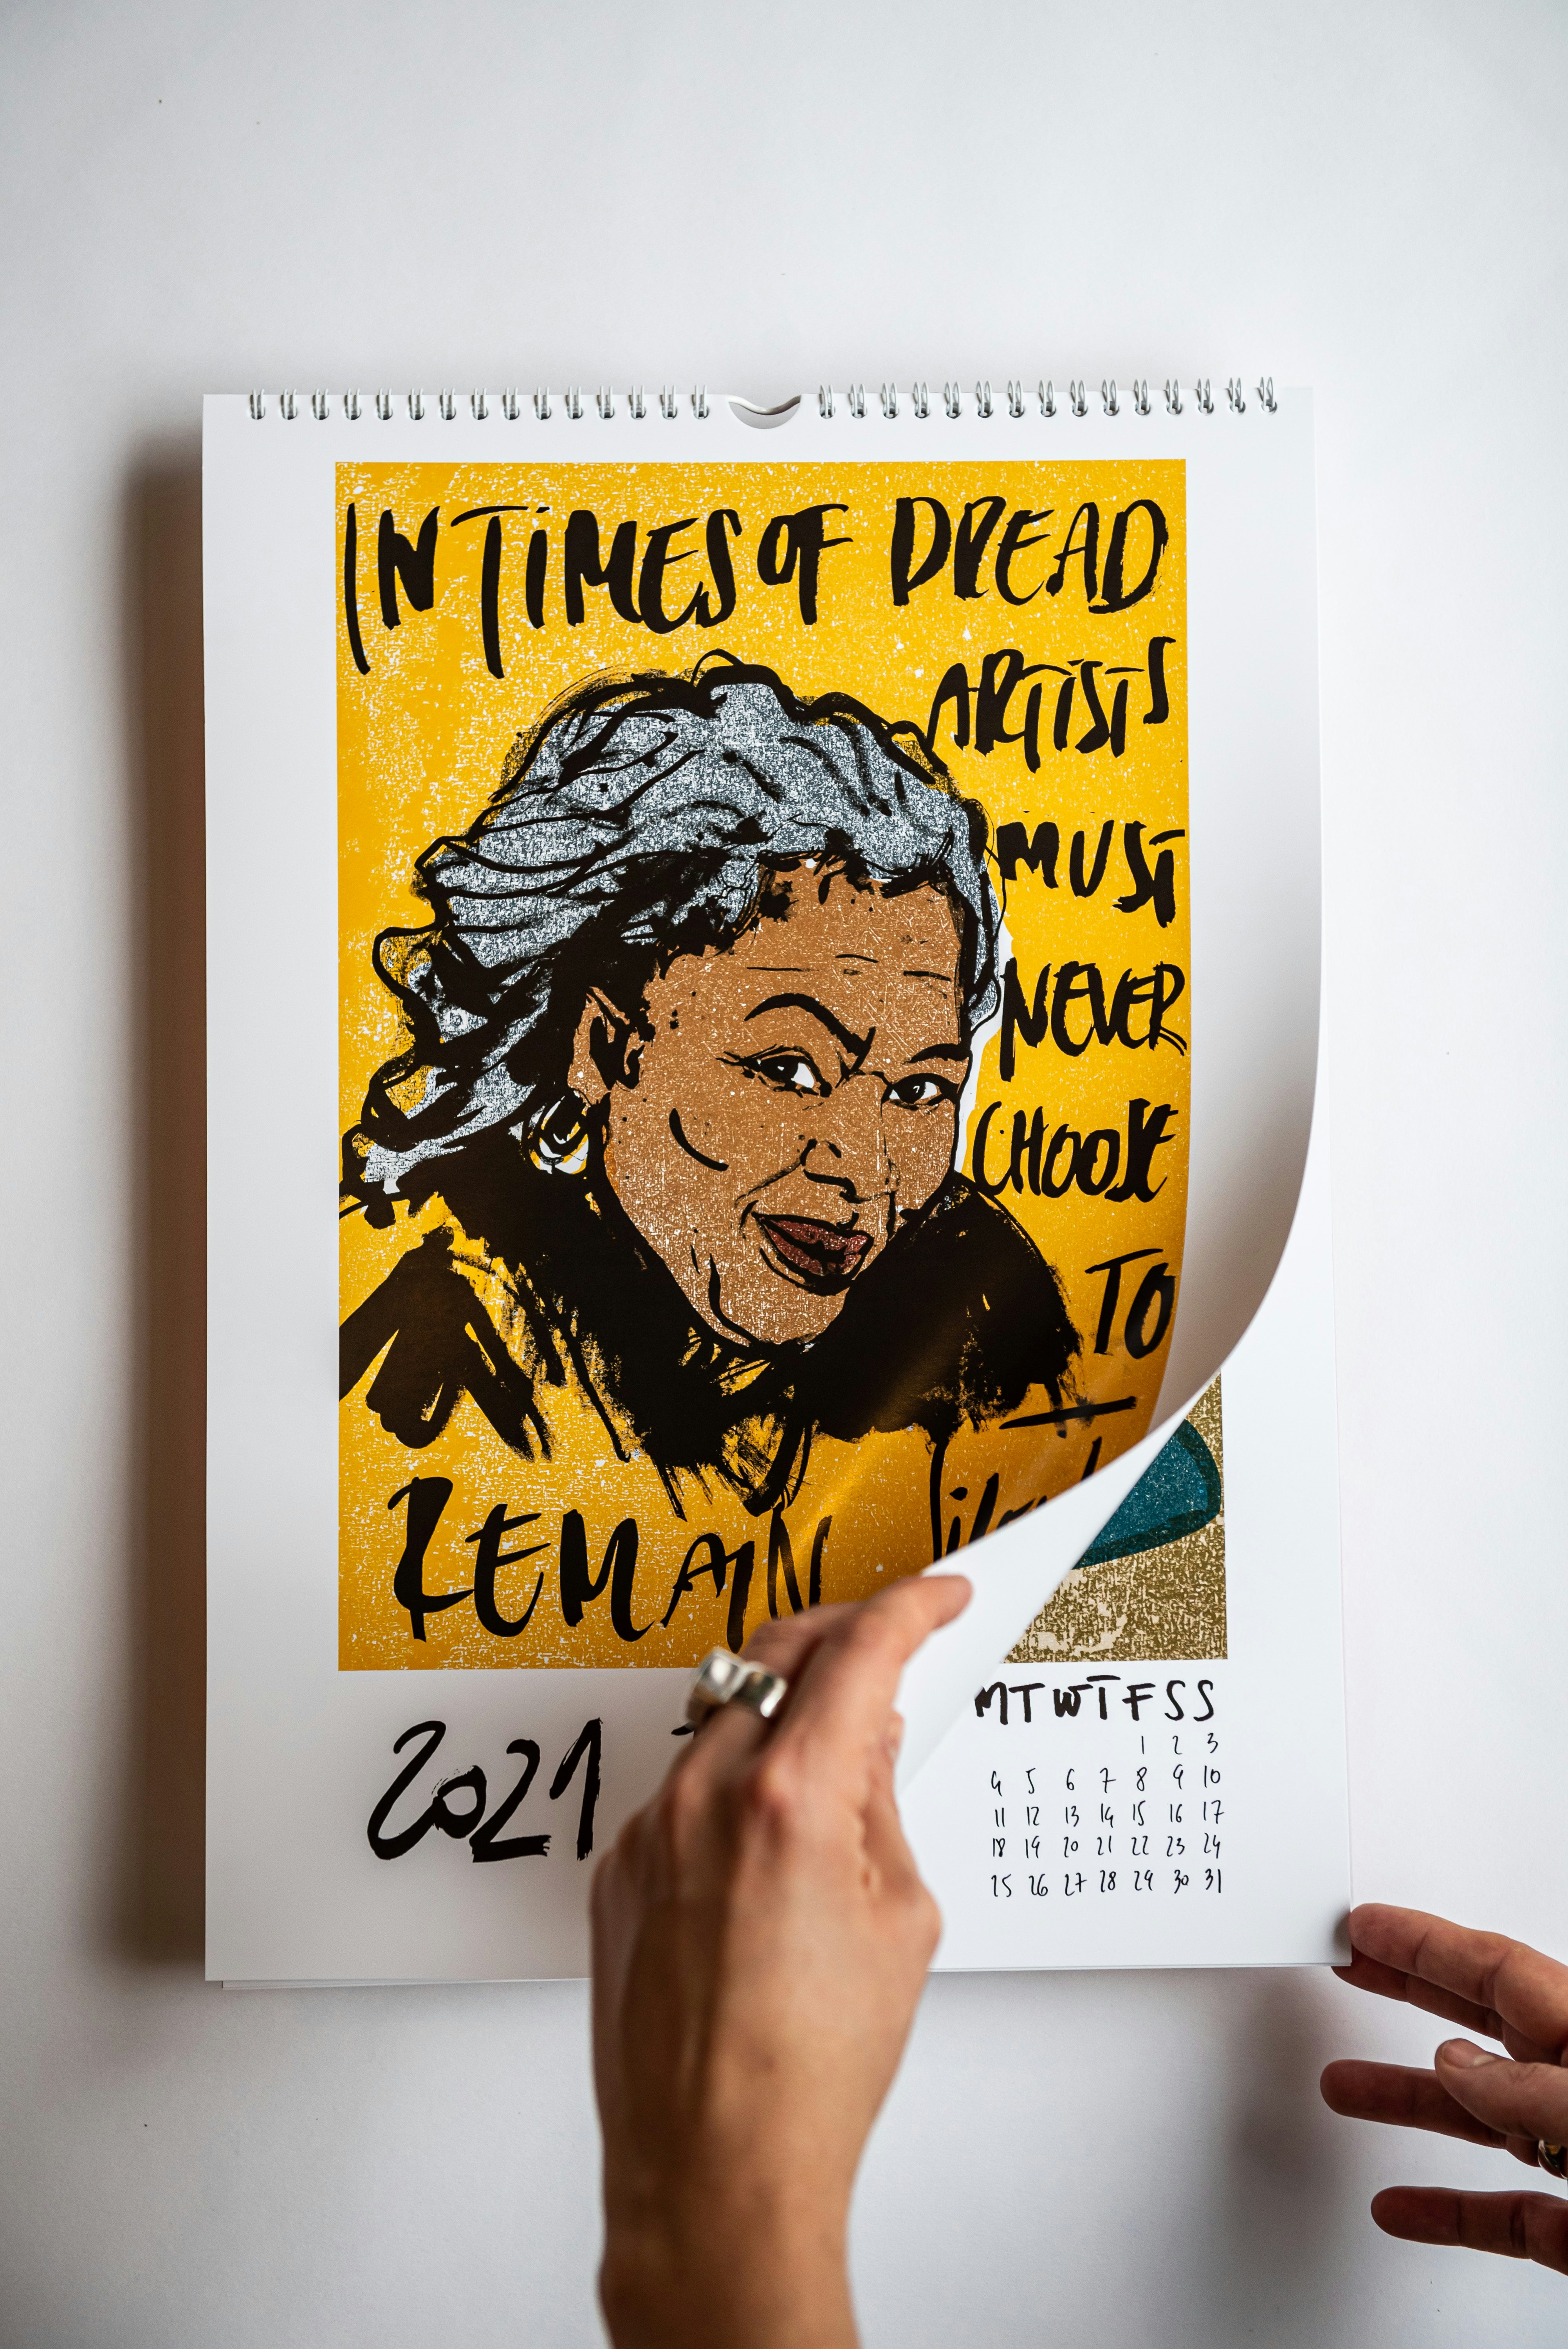 IN TIMES OF DREAD
ARTISTS
MUST
NEVER
CHOOSE
TO
REMAIN
2021
M T W T F S S
1 2 3
4 5 6 7 8 9 10
11 12 13 14 15 16 17
18 19 20 21 22 23 24
25 26 27 28 29 30 31